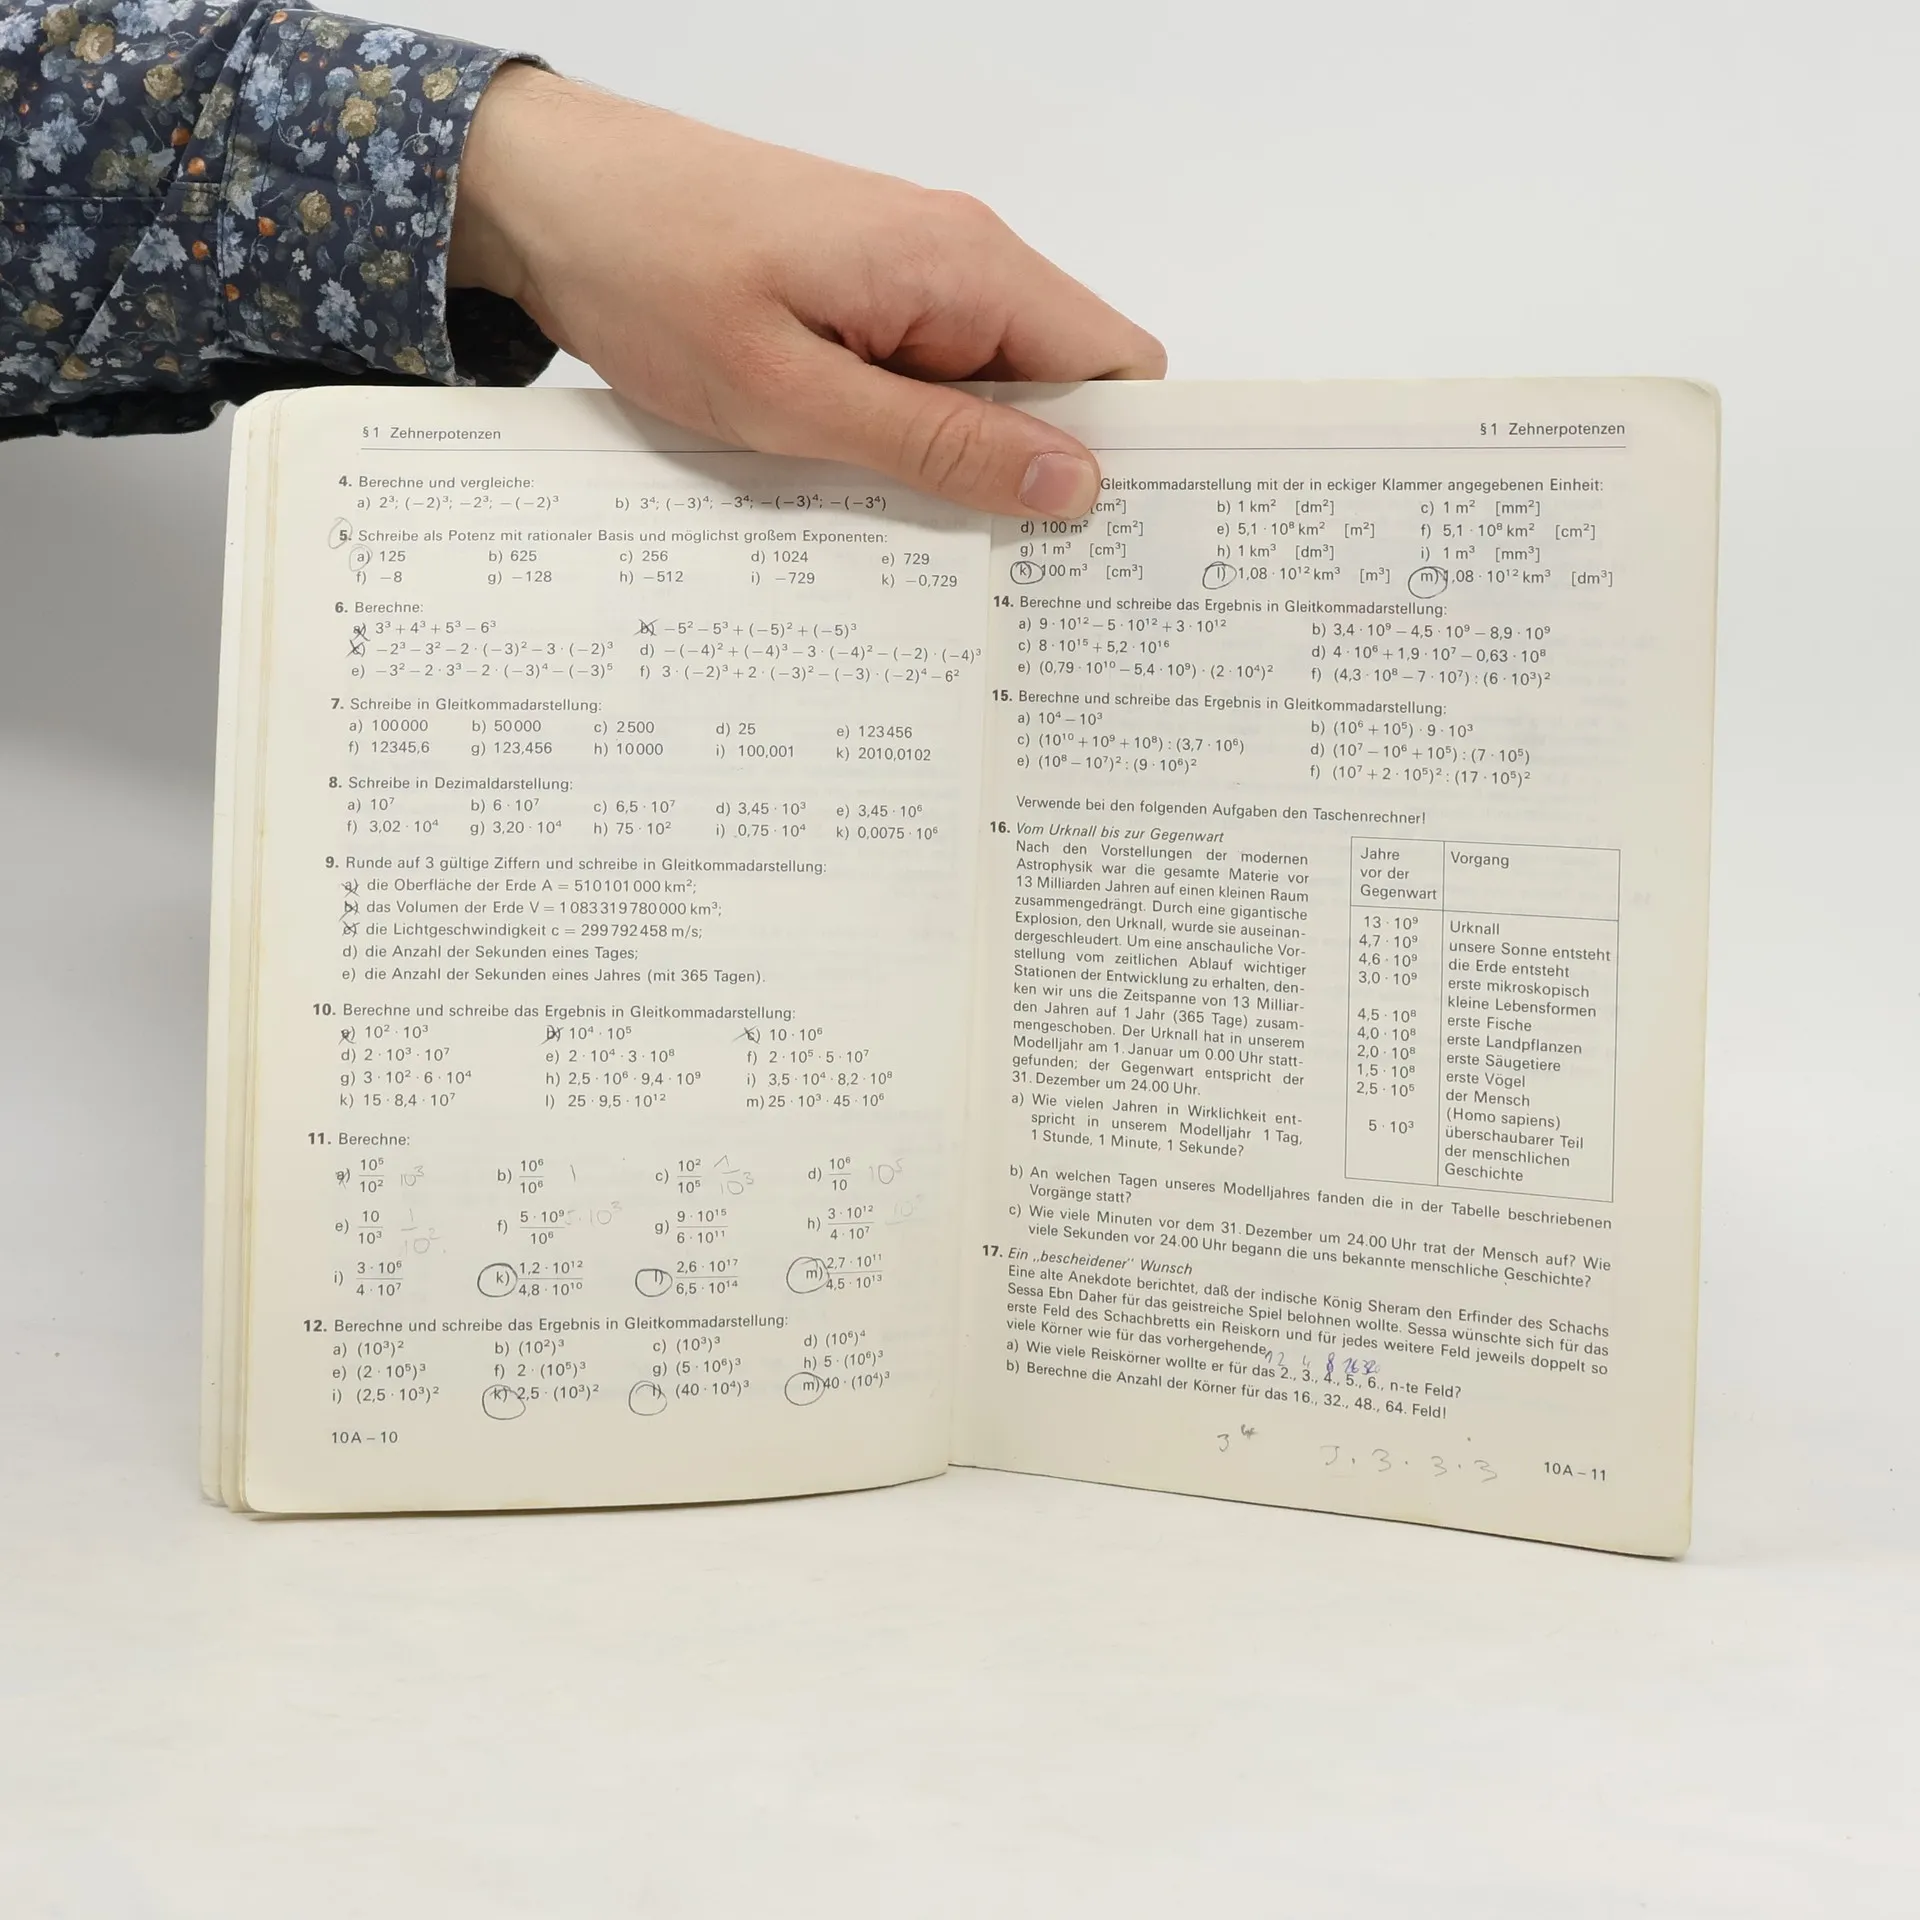 § 1 Zehnerpotenzen
4. Berechne und vergleiche:
a) 2³; (−2)³; −2³; −(−2)³ b) 3⁴; (−3)⁴; −3⁴; −(−3)⁴; −(−3⁴)
5. Schreibe als Potenz mit rationaler Basis und möglichst großem Exponenten:
a) 125 b) 625 c) 256 d) 1024 e) 729
f) −8 g) −128 h) −512 i) −729 k) −0,729
6. Berechne:
a) 3³ + 4³ + 5³ − 6³ b) −5² − 5³ + (−5)² + (−5)³
c) −2³ − 3² − 2 · (−3)² − 3 · (−2)³ d) −(−4)² + (−4)³ − 3 · (−4)² − (−2) · (−4)³
e) −3² − 2 · 3³ − 2 · (−3)⁴ − (−3)⁵ f) 3 · (−2)³ + 2 · (−3)² − (−3) · (−2)⁴ − 6²
7. Schreibe in Gleitkommadarstellung:
a) 100000 b) 50000 c) 2500 d) 25 e) 123456
f) 12345,6 g) 123,456 h) 10000 i) 100,001 k) 2010,0102
8. Schreibe in Dezimaldarstellung:
a) 10⁷ b) 6 · 10⁷ c) 6,5 · 10⁷ d) 3,45 · 10³ e) 3,45 · 10⁶
f) 3,02 · 10⁴ g) 3,20 · 10⁴ h) 75 · 10² i) 0,75 · 10⁴ k) 0,0075 · 10⁶
9. Runde auf 3 gültige Ziffern und schreibe in Gleitkommadarstellung:
a) die Oberfläche der Erde A = 510101000 km²;
b) das Volumen der Erde V = 1083319780000 km³;
c) die Lichtgeschwindigkeit c = 299792458 m/s;
d) die Anzahl der Sekunden eines Tages;
e) die Anzahl der Sekunden eines Jahres (mit 365 Tagen).
10. Berechne und schreibe das Ergebnis in Gleitkommadarstellung:
a) 10² · 10³ b) 10⁴ · 10⁵ c) 10 · 10⁶
d) 2 · 10³ · 10⁷ e) 2 · 10⁴ · 3 · 10⁸ f) 2 · 10⁵ · 5 · 10⁷
g) 3 · 10² · 6 · 10⁴ h) 2,5 · 10⁶ · 9,4 · 10⁹ i) 3,5 · 10⁴ · 8,2 · 10⁸
k) 15 · 8,4 · 10⁷ l) 25 · 9,5 · 10¹² m) 25 · 10³ · 45 · 10⁶
11. Berechne:
a) 10⁵/10² 10³ b) 10⁶/10⁶ 1 c) 10²/10⁵ 1/10³ d) 10⁶/10 10⁵
e) 10/10³ 1/10² f) 5 · 10⁹/10⁶ 5 · 10³ g) 9 · 10¹⁵/6 · 10¹¹ h) 3 · 10¹²/4 · 10⁷
i) 3 · 10⁶/4 · 10⁷ k) 1,2 · 10¹²/4,8 · 10¹⁰ l) 2,6 · 10¹⁷/6,5 · 10¹⁴ m) 2,7 · 10¹¹/4,5 · 10¹³
12. Berechne und schreibe das Ergebnis in Gleitkommadarstellung:
a) (10³)² b) (10²)³ c) (10³)³ d) (10⁶)⁴
e) (2 · 10⁵)³ f) 2 · (10⁵)³ g) (5 · 10⁶)³ h) 5 · (10⁶)³
i) (2,5 · 10³)² k) 2,5 · (10³)² l) (40 · 10⁴)³ m) 40 · (10⁴)³
10A – 10
§ 1 Zehnerpotenzen
Gleitkommadarstellung mit der in eckiger Klammer angegebenen Einheit:
[cm²] b) 1 km² [dm²] c) 1 m² [mm²]
d) 100 m² [cm²] e) 5,1 · 10⁸ km² [m²] f) 5,1 · 10⁸ km² [cm²]
g) 1 m³ [cm³] h) 1 km³ [dm³] i) 1 m³ [mm³]
k) 100 m³ [cm³] l) 1,08 · 10¹² km³ [m³] m) 1,08 · 10¹² km³ [dm³]
14. Berechne und schreibe das Ergebnis in Gleitkommadarstellung:
a) 9 · 10¹² − 5 · 10¹² + 3 · 10¹² b) 3,4 · 10⁹ − 4,5 · 10⁹ − 8,9 · 10⁹
c) 8 · 10¹⁵ + 5,2 · 10¹⁶ d) 4 · 10⁶ + 1,9 · 10⁷ − 0,63 · 10⁸
e) (0,79 · 10¹⁰ − 5,4 · 10⁹) · (2 · 10⁴)² f) (4,3 · 10⁸ − 7 · 10⁷) : (6 · 10³)²
15. Berechne und schreibe das Ergebnis in Gleitkommadarstellung:
a) 10⁴ − 10³ b) (10⁶ + 10⁵) · 9 · 10³
c) (10¹⁰ + 10⁹ + 10⁸) : (3,7 · 10⁶) d) (10⁷ − 10⁶ + 10⁵) : (7 · 10⁵)
e) (10⁸ − 10⁷)² : (9 · 10⁶)² f) (10⁷ + 2 · 10⁵)² : (17 · 10⁵)²
Verwende bei den folgenden Aufgaben den Taschenrechner!
16. Vom Urknall bis zur Gegenwart
Nach den Vorstellungen der modernen
Astrophysik war die gesamte Materie vor
13 Milliarden Jahren auf einen kleinen Raum
zusammengedrängt. Durch eine gigantische
Explosion, den Urknall, wurde sie auseinan-
dergeschleudert. Um eine anschauliche Vor-
stellung vom zeitlichen Ablauf wichtiger
Stationen der Entwicklung zu erhalten, den-
ken wir uns die Zeitspanne von 13 Milliar-
den Jahren auf 1 Jahr (365 Tage) zusam-
mengeschoben. Der Urknall hat in unserem
Modelljahr am 1. Januar um 0.00 Uhr statt-
gefunden; der Gegenwart entspricht der
31. Dezember um 24.00 Uhr.
a) Wie vielen Jahren in Wirklichkeit ent-
spricht in unserem Modelljahr 1 Tag,
1 Stunde, 1 Minute, 1 Sekunde?
Jahre Vorgang
vor der
Gegenwart
13 · 10⁹ Urknall
4,7 · 10⁹ unsere Sonne entsteht
4,6 · 10⁹ die Erde entsteht
3,0 · 10⁹ erste mikroskopisch
kleine Lebensformen
4,5 · 10⁸ erste Fische
4,0 · 10⁸ erste Landpflanzen
2,0 · 10⁸ erste Säugetiere
1,5 · 10⁸ erste Vögel
2,5 · 10⁵ der Mensch
(Homo sapiens)
5 · 10³ überschaubarer Teil
der menschlichen
Geschichte
b) An welchen Tagen unseres Modelljahres fanden die in der Tabelle beschriebenen
Vorgänge statt?
c) Wie viele Minuten vor dem 31. Dezember um 24.00 Uhr trat der Mensch auf? Wie
viele Sekunden vor 24.00 Uhr begann die uns bekannte menschliche Geschichte?
17. Ein „bescheidener“ Wunsch
Eine alte Anekdote berichtet, daß der indische König Sheram den Erfinder des Schachs
Sessa Ebn Daher für das geistreiche Spiel belohnen wollte. Sessa wünschte sich für das
erste Feld des Schachbretts ein Reiskorn und für jedes weitere Feld jeweils doppelt so
viele Körner wie für das vorhergehende.
2 4 8 16 32
a) Wie viele Reiskörner wollte er für das 2., 3., 4., 5., 6., n-te Feld?
b) Berechne die Anzahl der Körner für das 16., 32., 48., 64. Feld!
3⁴ 3 · 3 · 3 · 3
10A – 11